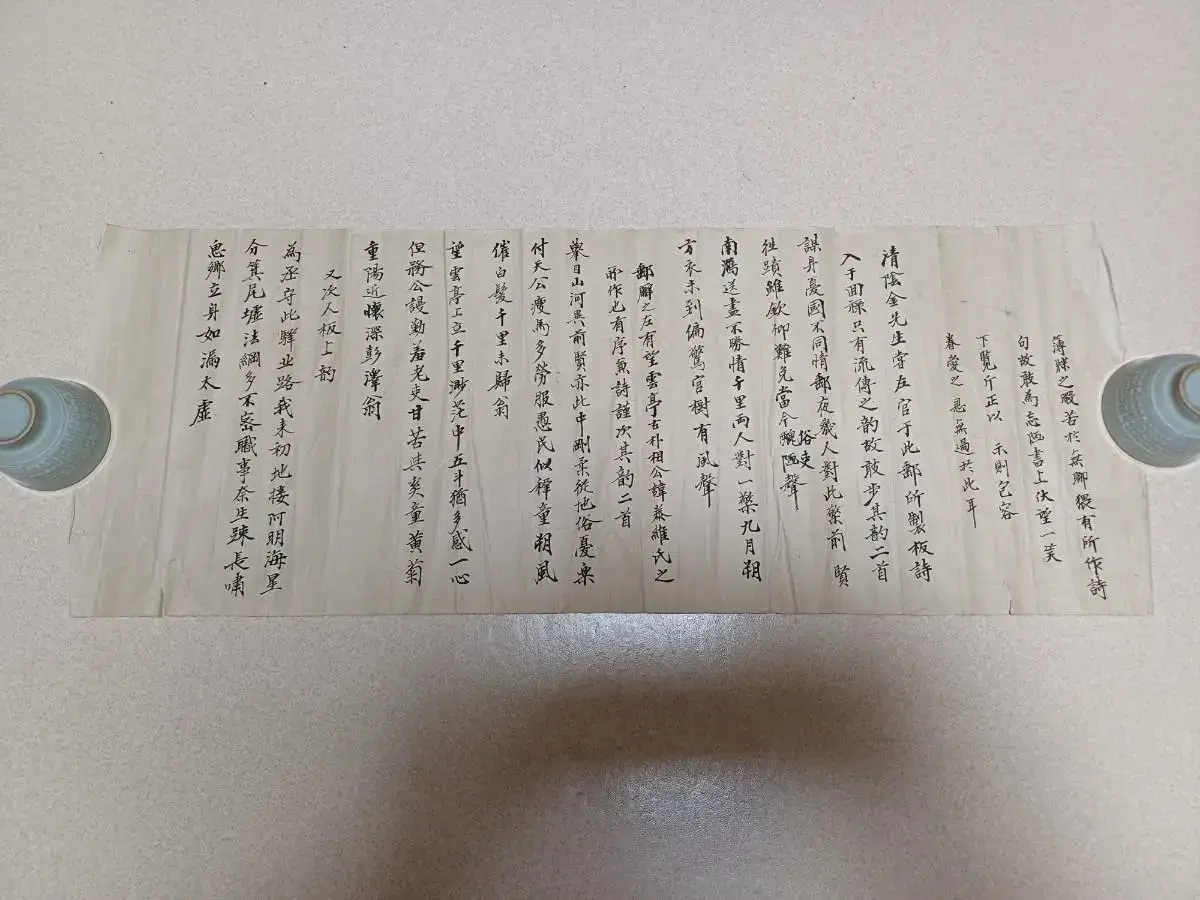 薄牒之暇若於無聊猥有所作詩
句故敢爲忘陋書上伏望一笑
下覽斤正以 示則包容
眷愛之 恩無過於此耳
清陰金先生嘗左官于此郵所製板詩
入于回祿只有流傳之韵故敢步其韵二首
謀身憂國不同情郵夜幾人對此檠前賢
徃蹟雖欽仰難免當今俗吏聲
南鴻送盡不勝情千里兩人對一檠九月朔
方衣未到偏驚官樹有風聲
郵廨之左有望雲亭古朴相公諱泰維氏之
所作也有序兼詩謹次其韵二首
擧目山河異前賢亦此中剛柔從地俗憂樂
付天公瘦馬多勞服愚民似稺童朔風
催白髮千里未歸翁
望雲亭上立千里渺茫中五斗猶多感一心
但務公謾勤羞老吏甘苦與矣童黃菊
重陽近懷深彭澤翁
又次人板上韵
爲丞守此驛並路我来初地接阿明海星
分箕尾墟法綱多不密職事奈生踈長嘯
思鄉立身如漏太虛